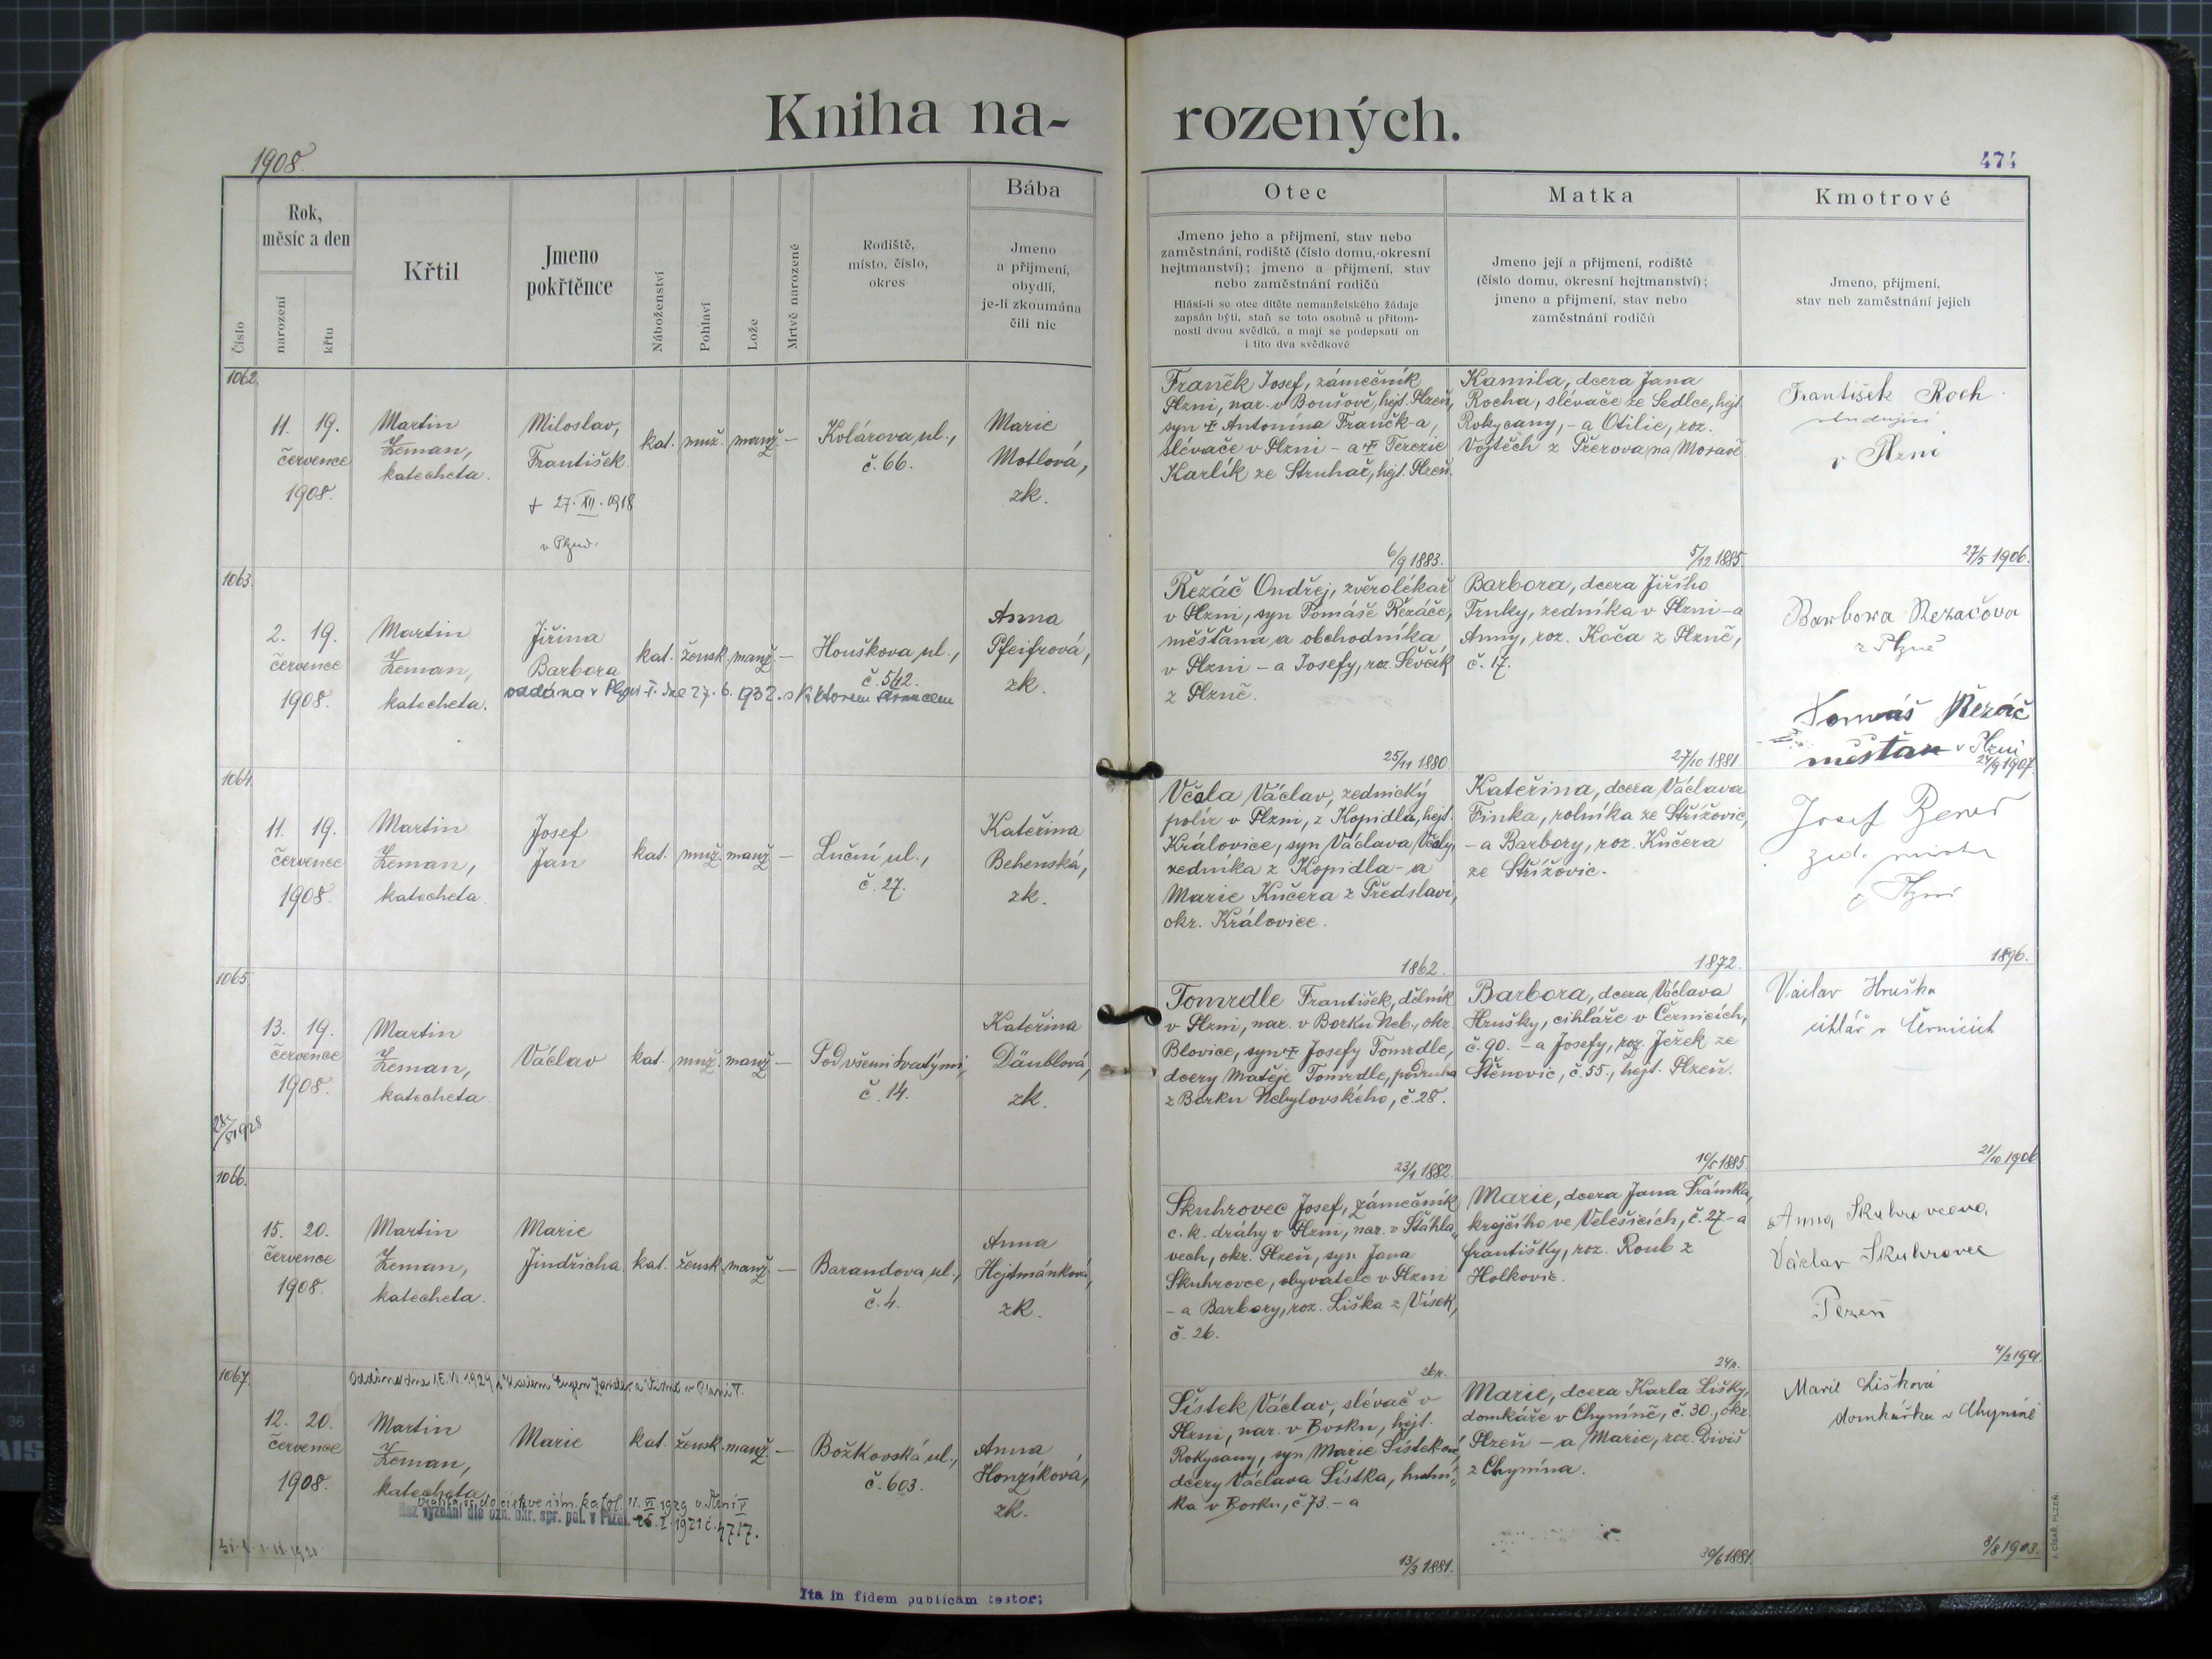 Kniha na-
rozených.
1908.
474
Číslo
Rok,
měsíc a den
narození
křtu
Křtil
Jmeno
pokřtěnce
Náboženství
Pohlaví
Lože
Mrtvě narozené
Rodiště,
místo, číslo,
okres
Bába
Jmeno
a příjmení,
obydlí,
je-li zkoumána
čili nic
Otec
Jmeno jeho a přijmení, stav nebo
zaměstnání, rodiště (číslo domu, okresní
hejtmanství); jmeno a přijmení, stav
nebo zaměstnání rodičů
Hlásí-li se otec dítěte nemanželského žádaje
zapsán býti, staň se toto osobně u přítom-
nosti dvou svědků, a mají se podepsati on
i tito dva svědkové
Matka
Jmeno její a přijmení, rodiště
(číslo domu, okresní hejtmanství);
jmeno a přijmení, stav nebo
zaměstnání rodičů
Kmotrové
Jmeno, přijmení,
stav neb zaměstnání jejich
1062.
11. 19.
července
1908.
Martin
Zeman,
katecheta.
Miloslav,
František.
+ 27. XII. 1918
v Plzni.
kat. muž. manž. –
Kolárova ul.,
č. 66.
Marie
Motlová,
zk.
Franěk Josef, zámečník
Plzni, nar. v Boušově, hejt. Plzeň,
syn + Antonína Fraňk-a,
slévače v Plzni – a + Terezie
Karlík ze Struhař, hejt. Plzeň.
6/9 1883.
Kamila, dcera Jana
Rocha, slévače ze Sedlce, hejt.
Rokycany, – a Otilie, roz.
Vojtěch z Přerova na Moravě.
5/12 1885.
František Roch
studující
v Plzni
27/5 1906.
1063.
2. 19.
července
1908.
Martin
Zeman,
katecheta.
Jiřina
Barbora
oddána v Plzni I. dne 27. 6. 1932. s
kat. žensk. manž. –
Houškova ul.,
č. 542.
Anna
Pfeifrová,
zk.
Řezáč Ondřej, zvěrolékař
v Plzni, syn Tomáše Řezáče,
měšťana a obchodníka
v Plzni – a Josefy, roz. Ševčík
z Plzně.
25/11 1880
Barbora, dcera Jiřího
Trnky, zedníka v Plzni – a
Anny, roz. Koča z Plzně,
č. 17.
27/10 1881.
Barbora Rezáčova
z Plzně
Tomáš Řezáč
měšťan v Plzni
24/9 1907.
1064.
11. 19.
července
1908.
Martin
Zeman,
katecheta.
Josef
Jan
kat. muž. manž. –
Luční ul.,
č. 27.
Kateřina
Behenská,
zk.
Včala Václav, zednický
polír v Plzni, z Kopidla, hejt.
Královice, syn Václava Včaly,
zedníka z Kopidla – a
Marie Kučera z Předslavi,
okr. Královice.
1862.
Kateřina, dcera Václava
Finka, rolníka ze Střížovic,
– a Barbory, roz. Kučera
ze Střížovic.
1872.
Josef
zed.
v Plzni
1896.
1065.
13. 19.
července
1908.
Martin
Zeman,
katecheta.
Václav
kat. muž. manž. –
Pod všemi svatými,
č. 14.
Kateřina
Däublová,
zk.
Tomrdle František, dělník
v Plzni, nar. v Borku Neb., okr.
Blovice, syn + Josefy Tomrdle,
dcery Matěje Tomrdle, podruha
z Borku Nebylovského, č. 28.
23/1 1882.
Barbora, dcera Václava
Hrušky, cihláře v Černicích,
č. 90. – a Josefy, roz. Ježek ze
Štěnovic, č. 55., hejt. Plzeň.
10/5 1885.
Václav Hruška
cihlář v Černicích
21/10 1906
1066.
15. 20.
července
1908.
Martin
Zeman,
katecheta.
Marie
Jindřicha
kat. žensk. manž. –
Barandova ul.,
č. 4.
Anna
Hejtmánková,
zk.
Skuhrovec Josef, zámečník
c. k. dráhy v Plzni, nar. v Šťáhla-
vech, okr. Plzeň, syn Jana
Skuhrovce, obyvatele v Plzni
– a Barbory, roz. Liška z Vísek,
č. 26.
26 r.
Marie, dcera Jana Šrámka,
krejčího ve Velešicích, č. 27. – a
Františky, roz. Roub z
Holkovic.
24 r.
Anna Skuhrovcova
Václav Skuhrovec
Plzeň
1067.
12. 20.
července
1908.
Martin
Zeman,
katecheta.
Marie
kat. žensk. manž. –
Božkovská ul.,
č. 603.
Anna
Honzíková,
zk.
Šístek Václav, slévač v
Plzni, nar. v Borku, hejt.
Rokycany, syn Marie Šístekové,
dcery Václava Šístka, hutní-
ka v Borku, č. 73. – a
13/3 1881.
Marie, dcera Karla Lišky,
domkáře v Chyníně, č. 30., okr.
Plzeň – a Marie, roz. Diviš
z Chynína.
30/6 1881.
Marie Lišková
domkářka v Chyníně
8/8 1903.
Bez vyznání dle ozn. okr. spr. pol. v Plzni 26. I. 1921 č. 4717.
Ita in fidem publicam testor:
J. CÍSAŘ, PLZEŇ.